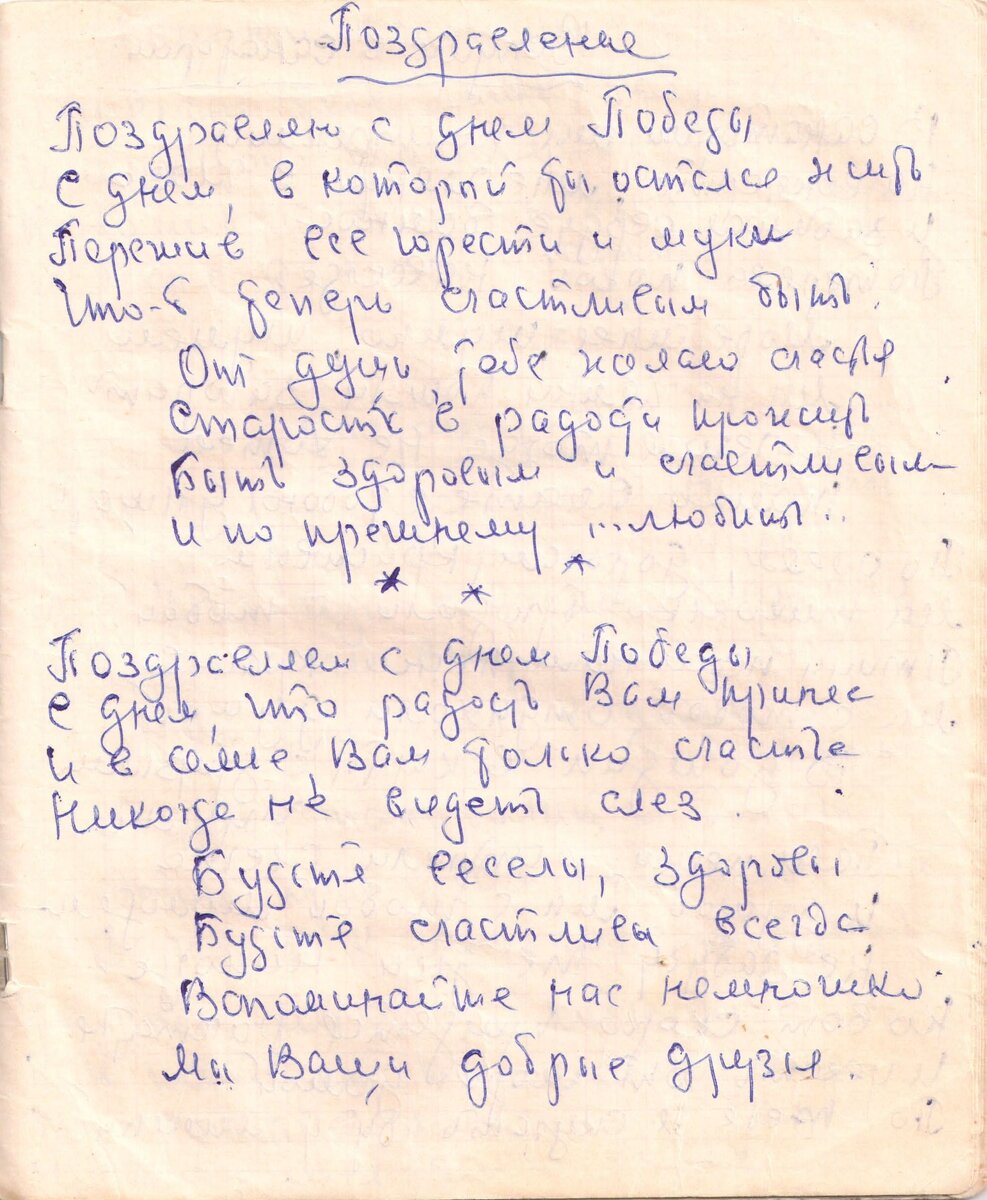 Поздравление
Поздравляю с днем Победы
С днем, в который ты остался жить
Пережив все горести и муки
Что-б теперь счастливым быть.
От души тебе желаю счастья
Старость в радости прожить
Быть здоровым и счастливым
И по прежнему ...любить..
* * *
Поздравляем с днем Победы
С днем, что радость Вам принес
И в семье Вам только счастье
Никогда не видеть слез.
Будьте веселы, здоровы
Будьте счастливы всегда
Вспоминайте нас немножко.
Мы Ваши добрые друзья.